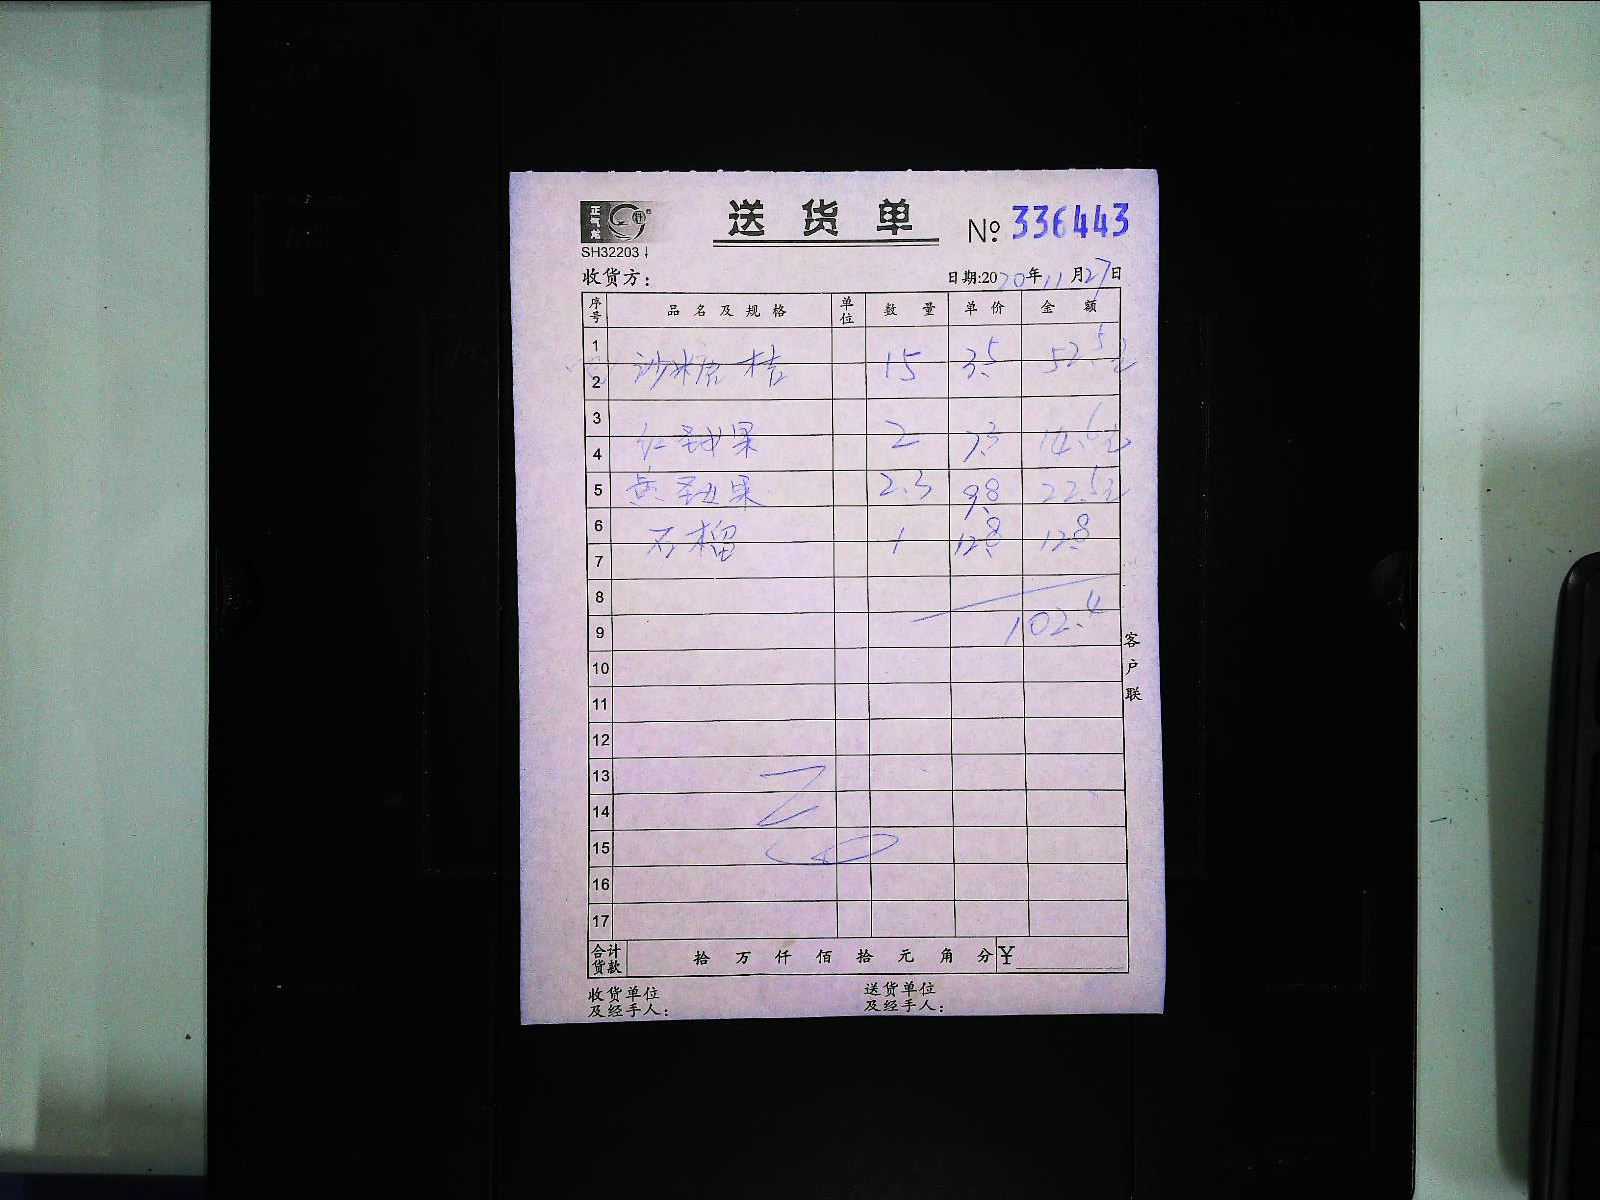 正气龙
送货单 № 336443
SH32203
收货方: 日期:2020年11月27日
序号 品名及规格 单位 数量 单价 金额
1
2 沙糖桔 15 3.5 52.5元
3
4 红圣女果 2 7.3 14.6元
5 黄圣女果 2.3 9.8 22.5元
6
7 石榴 1 12.8 12.8
8
9 102.4
客户联
10
11
12
13
14
15
16
17
合计货款 拾 万 仟 佰 拾 元 角 分 ¥
收货单位 送货单位
及经手人: 及经手人: